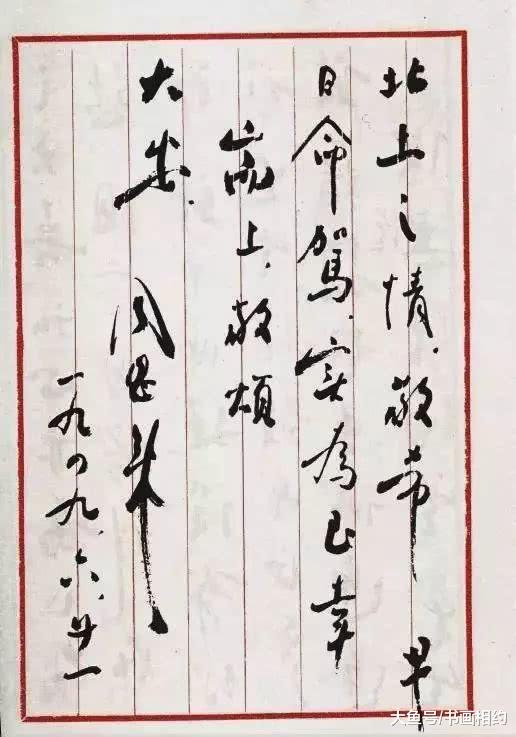 北上之情、敬希早
日命駕、实为至幸
耑上、敬頌
大安.
周恩来
一九四九、六、廿一
大鱼号/书画相约